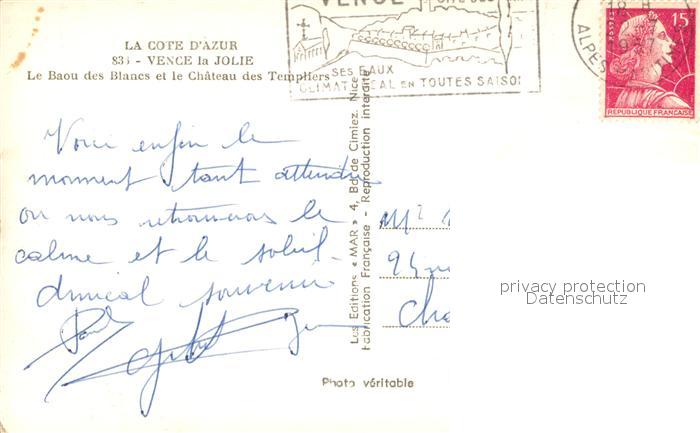 LA COTE D'AZUR
835 - VENCE la JOLIE
Le Baou des Blancs et le Château des Templiers
VENCE
CITÉ DES
SES EAUX
CLIMAT IDEAL EN TOUTES SAISO
ALPES
POSTES
15F
REPUBLIQUE FRANÇAISE
Voici enfin le
moment tant attendu
ou nous retrouvons le
calme et le soleil
Amical souvenir
Paul
Les Editions « MAR » 4, Bd. de Cimiez, Nice
Fabrication Française - Reproduction interdite
Mr
94
Cha
privacy protection
Datenschutz
Photo véritable